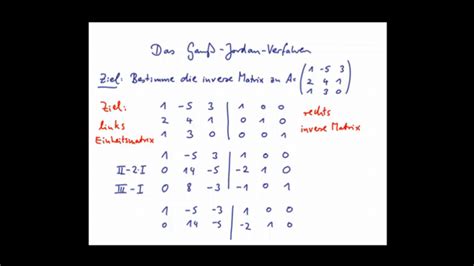 Das Gauß-Jordan-Verfahren
Ziel: Bestimme die inverse Matrix zu A=
1 -5 3
2 4 1
1 3 0
Ziel: 1 -5 3 | 1 0 0 rechts
links 2 4 1 | 0 1 0 inverse Matrix
Einheitsmatrix 1 3 0 | 0 0 1
1 -5 3 | 1 0 0
II-2·I 0 14 -5 | -2 1 0
III-I 0 8 -3 | -1 0 1
1 -5 -3 | 1 0 0
0 14 -5 | -2 1 0